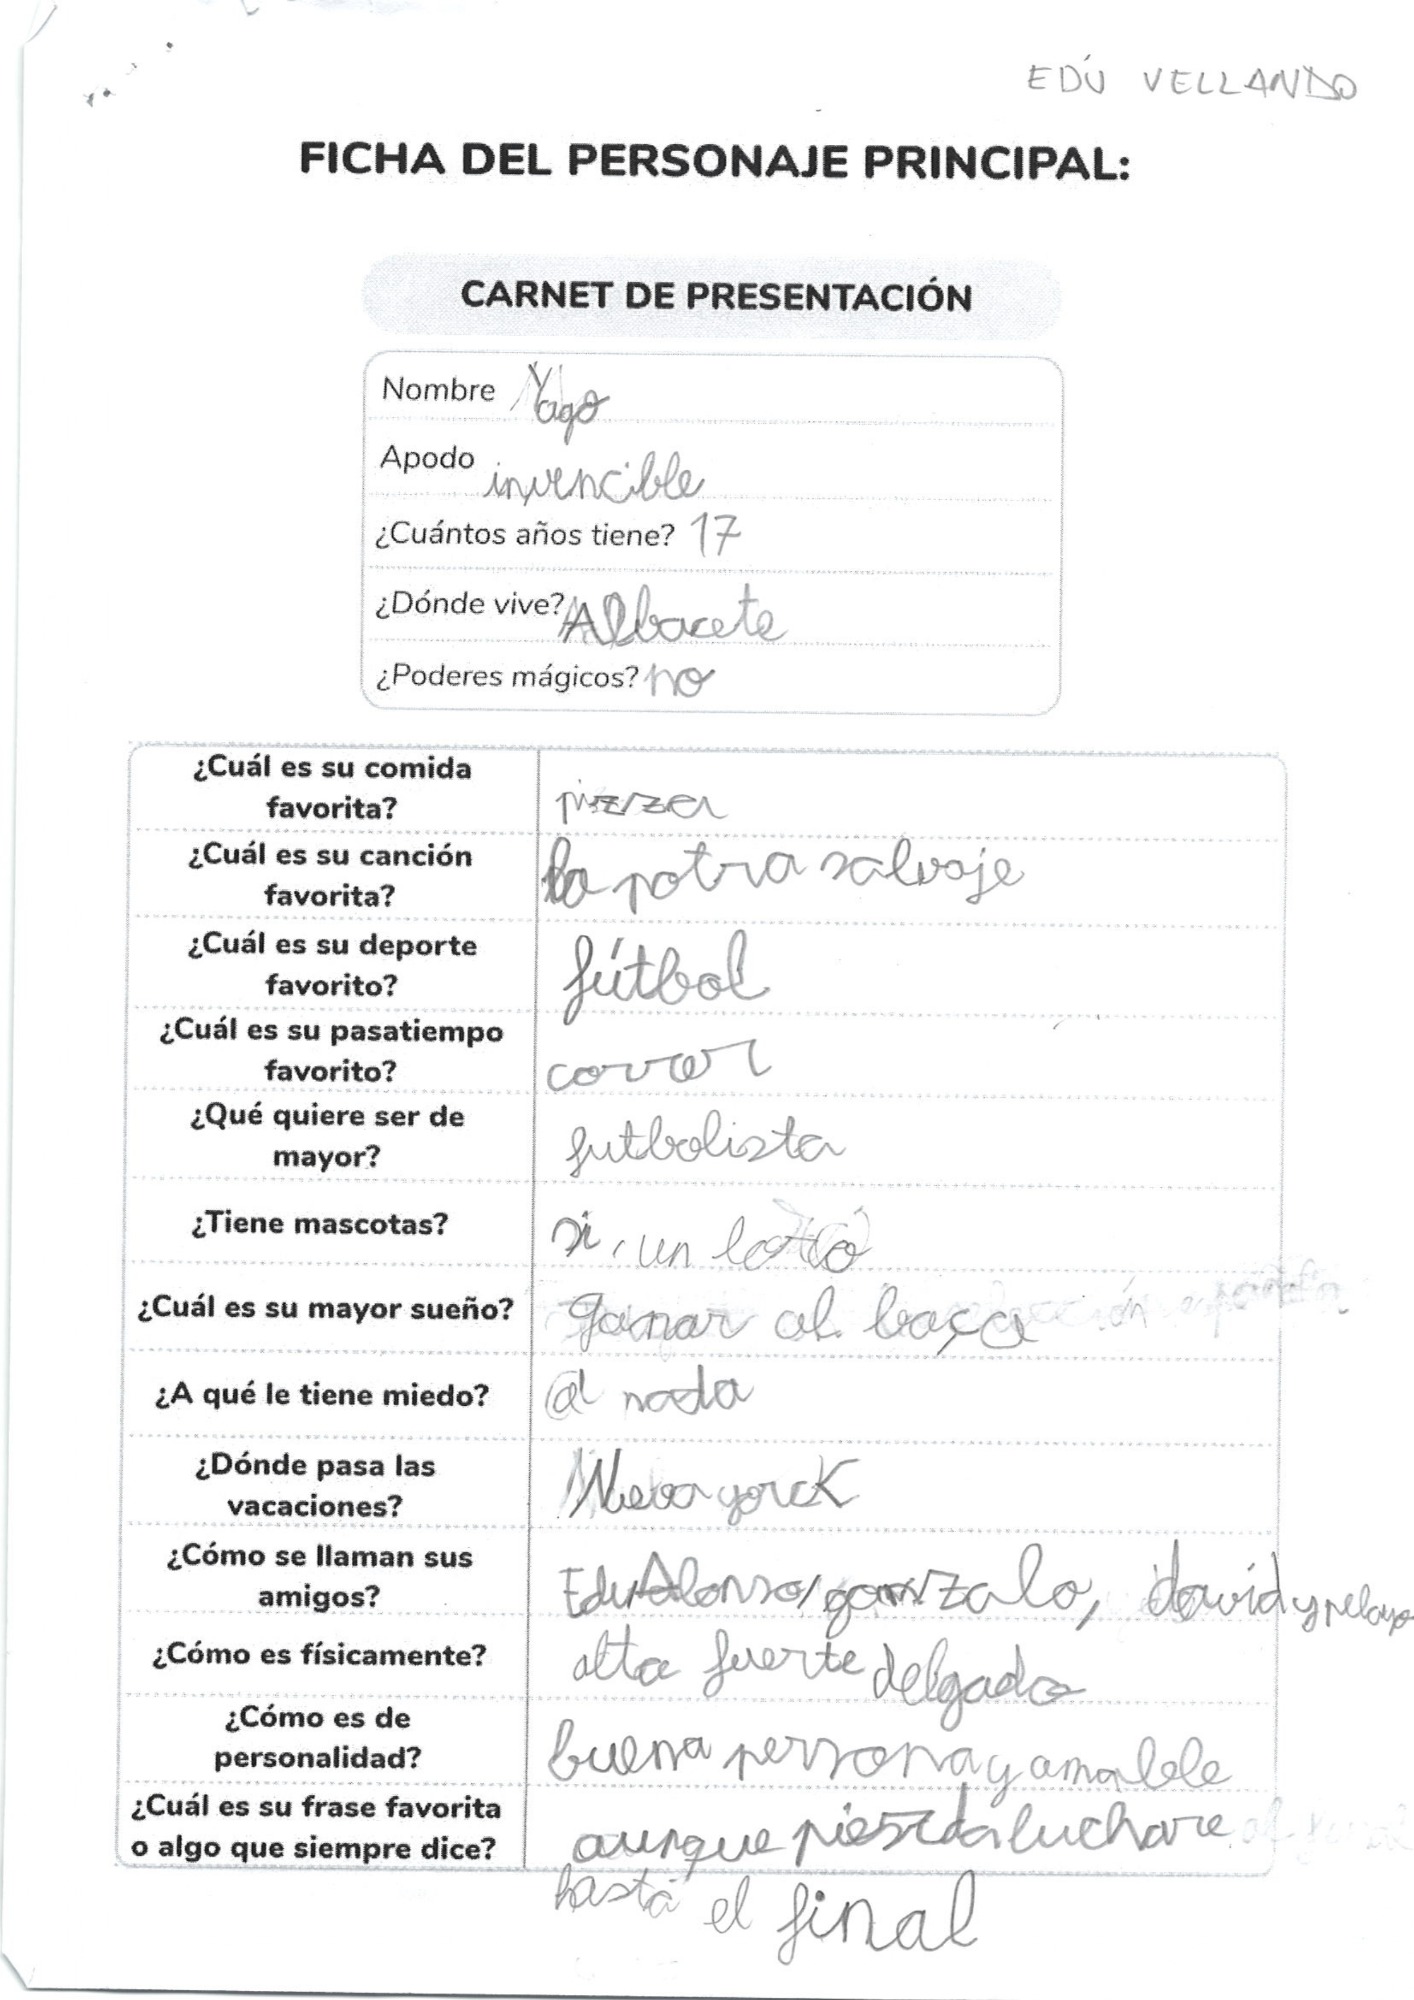 EDÚ VELLANDO
FICHA DEL PERSONAJE PRINCIPAL:
CARNET DE PRESENTACIÓN
Nombre Yago
Apodo invencible
¿Cuántos años tiene? 17
¿Dónde vive? Albacete
¿Poderes mágicos? no
¿Cuál es su comida
favorita?
pizza
¿Cuál es su canción
favorita?
la potra salvaje
¿Cuál es su deporte
favorito?
fútbol
¿Cuál es su pasatiempo
favorito?
correr
¿Qué quiere ser de
mayor?
futbolista
¿Tiene mascotas?
si, un
¿Cuál es su mayor sueño?
ganar al baça
¿A qué le tiene miedo?
a nada
¿Dónde pasa las
vacaciones?
Nueba yorcK
¿Cómo se llaman sus
amigos?
Edu Alonso, gonzalo, david y pelayo
¿Cómo es físicamente?
alto fuerte delgado
¿Cómo es de
personalidad?
buena persona y amable
¿Cuál es su frase favorita
o algo que siempre dice?
aunque pierda luchare
hasta el final